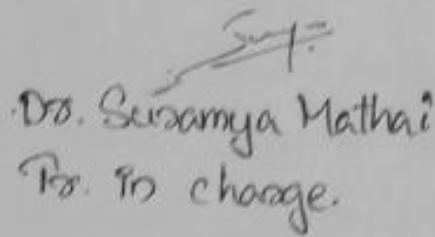 Dr. Suramya Mathai
Pr. in charge.